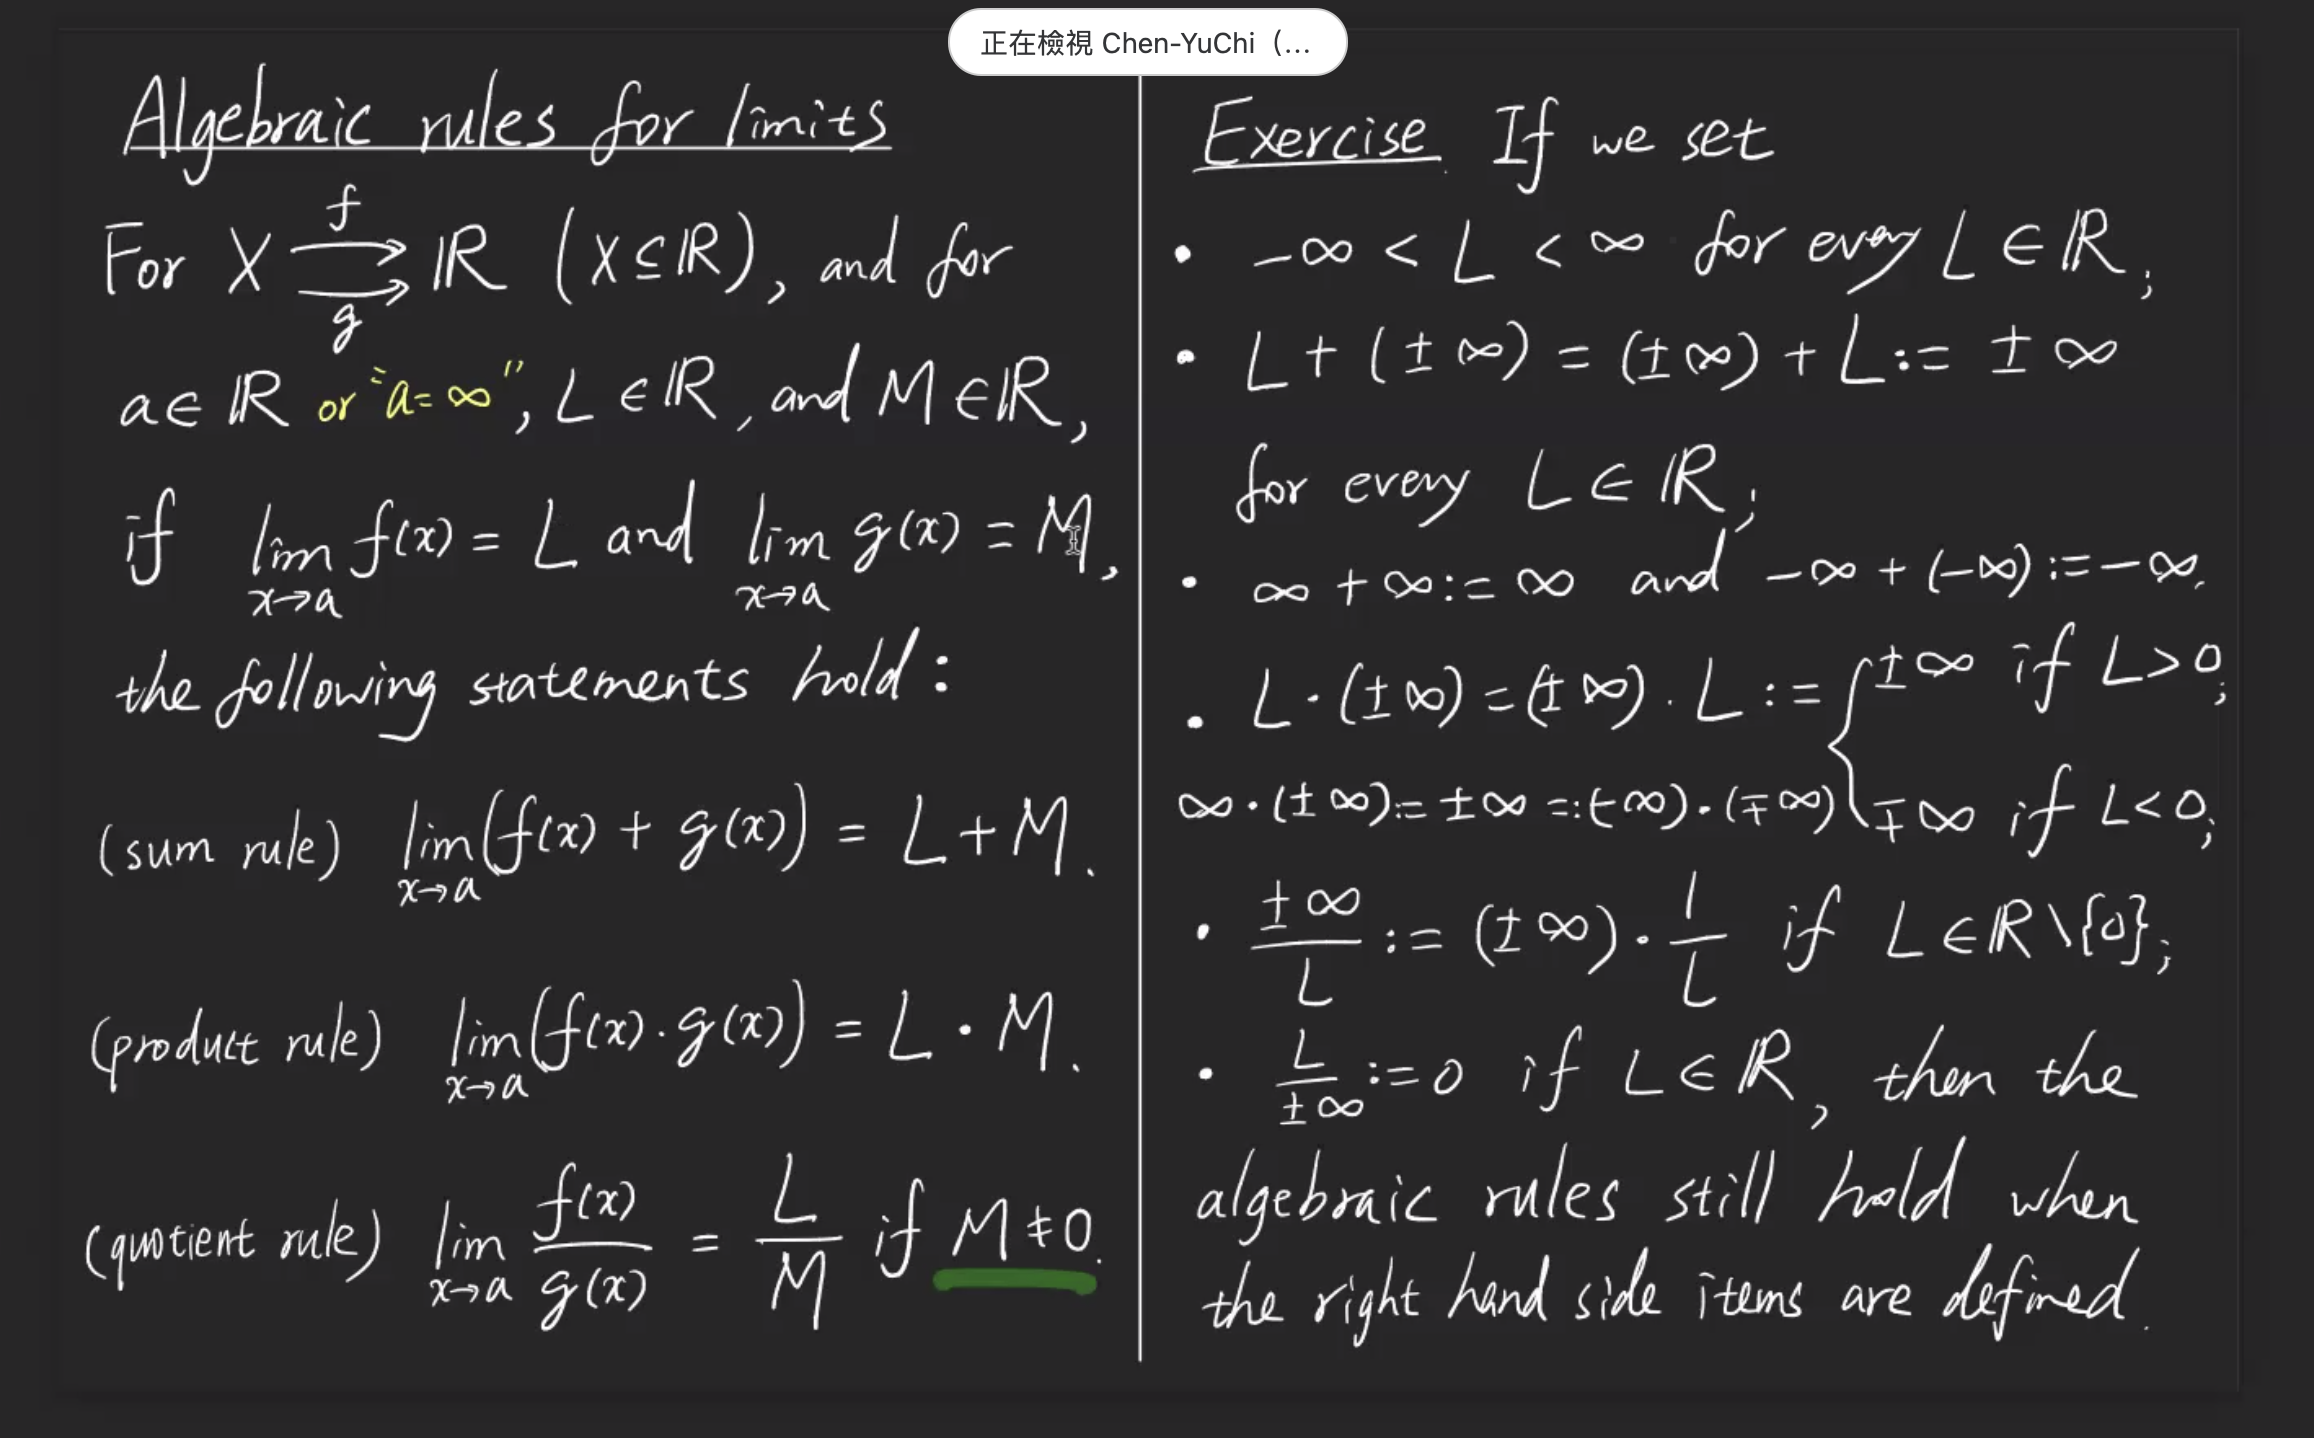 正在檢視 Chen-YuChi（...
Algebraic rules for limits
For X ⇉ ℝ (X ⊆ ℝ), and for
f
g
a ∈ ℝ or "a = ∞", L ∈ ℝ, and M ∈ ℝ,
if lim f(x) = L and lim g(x) = M,
x→a x→a
the following statements hold:
(sum rule) lim (f(x) + g(x)) = L + M.
x→a
(product rule) lim (f(x) · g(x)) = L · M.
x→a
(quotient rule) lim f(x)/g(x) = L/M if M ≠ 0.
x→a
Exercise. If we set
• -∞ < L < ∞ for every L ∈ ℝ;
• L + (±∞) = (±∞) + L := ±∞
for every L ∈ ℝ;
• ∞ + ∞ := ∞ and -∞ + (-∞) := -∞.
• L · (±∞) = (±∞) · L := { ±∞ if L > 0;
∞ · (±∞) := ±∞ =: (-∞) · (∓∞) ∓∞ if L < 0;
• ±∞/L := (±∞) · 1/L if L ∈ ℝ \ {0};
• L/±∞ := 0 if L ∈ ℝ, then the
algebraic rules still hold when
the right hand side items are defined.